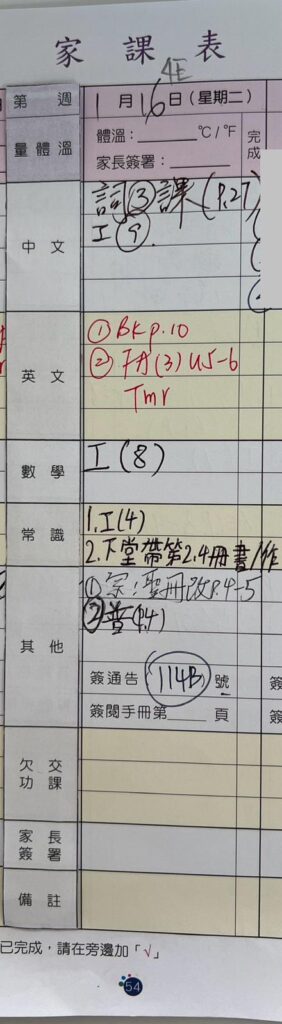 家課表
4E
第 週 1月16日(星期二)
量體溫 體溫：______ °C/°F 完成
家長簽署：______
中文 詞③課(P.27)
工⑨.
英文 ① BK p.10
② FA(3) U5-6
Tmr
數學 工(8)
常識 1.工(4)
2.下堂帶第2.4冊書/作
其他 ①宗：聖冊改p.4-5
②普(P.4)
簽通告 114B 號 簽
簽閱手冊第______頁 簽
欠交功課
家長簽署
備註
已完成，請在旁邊加「√」
54